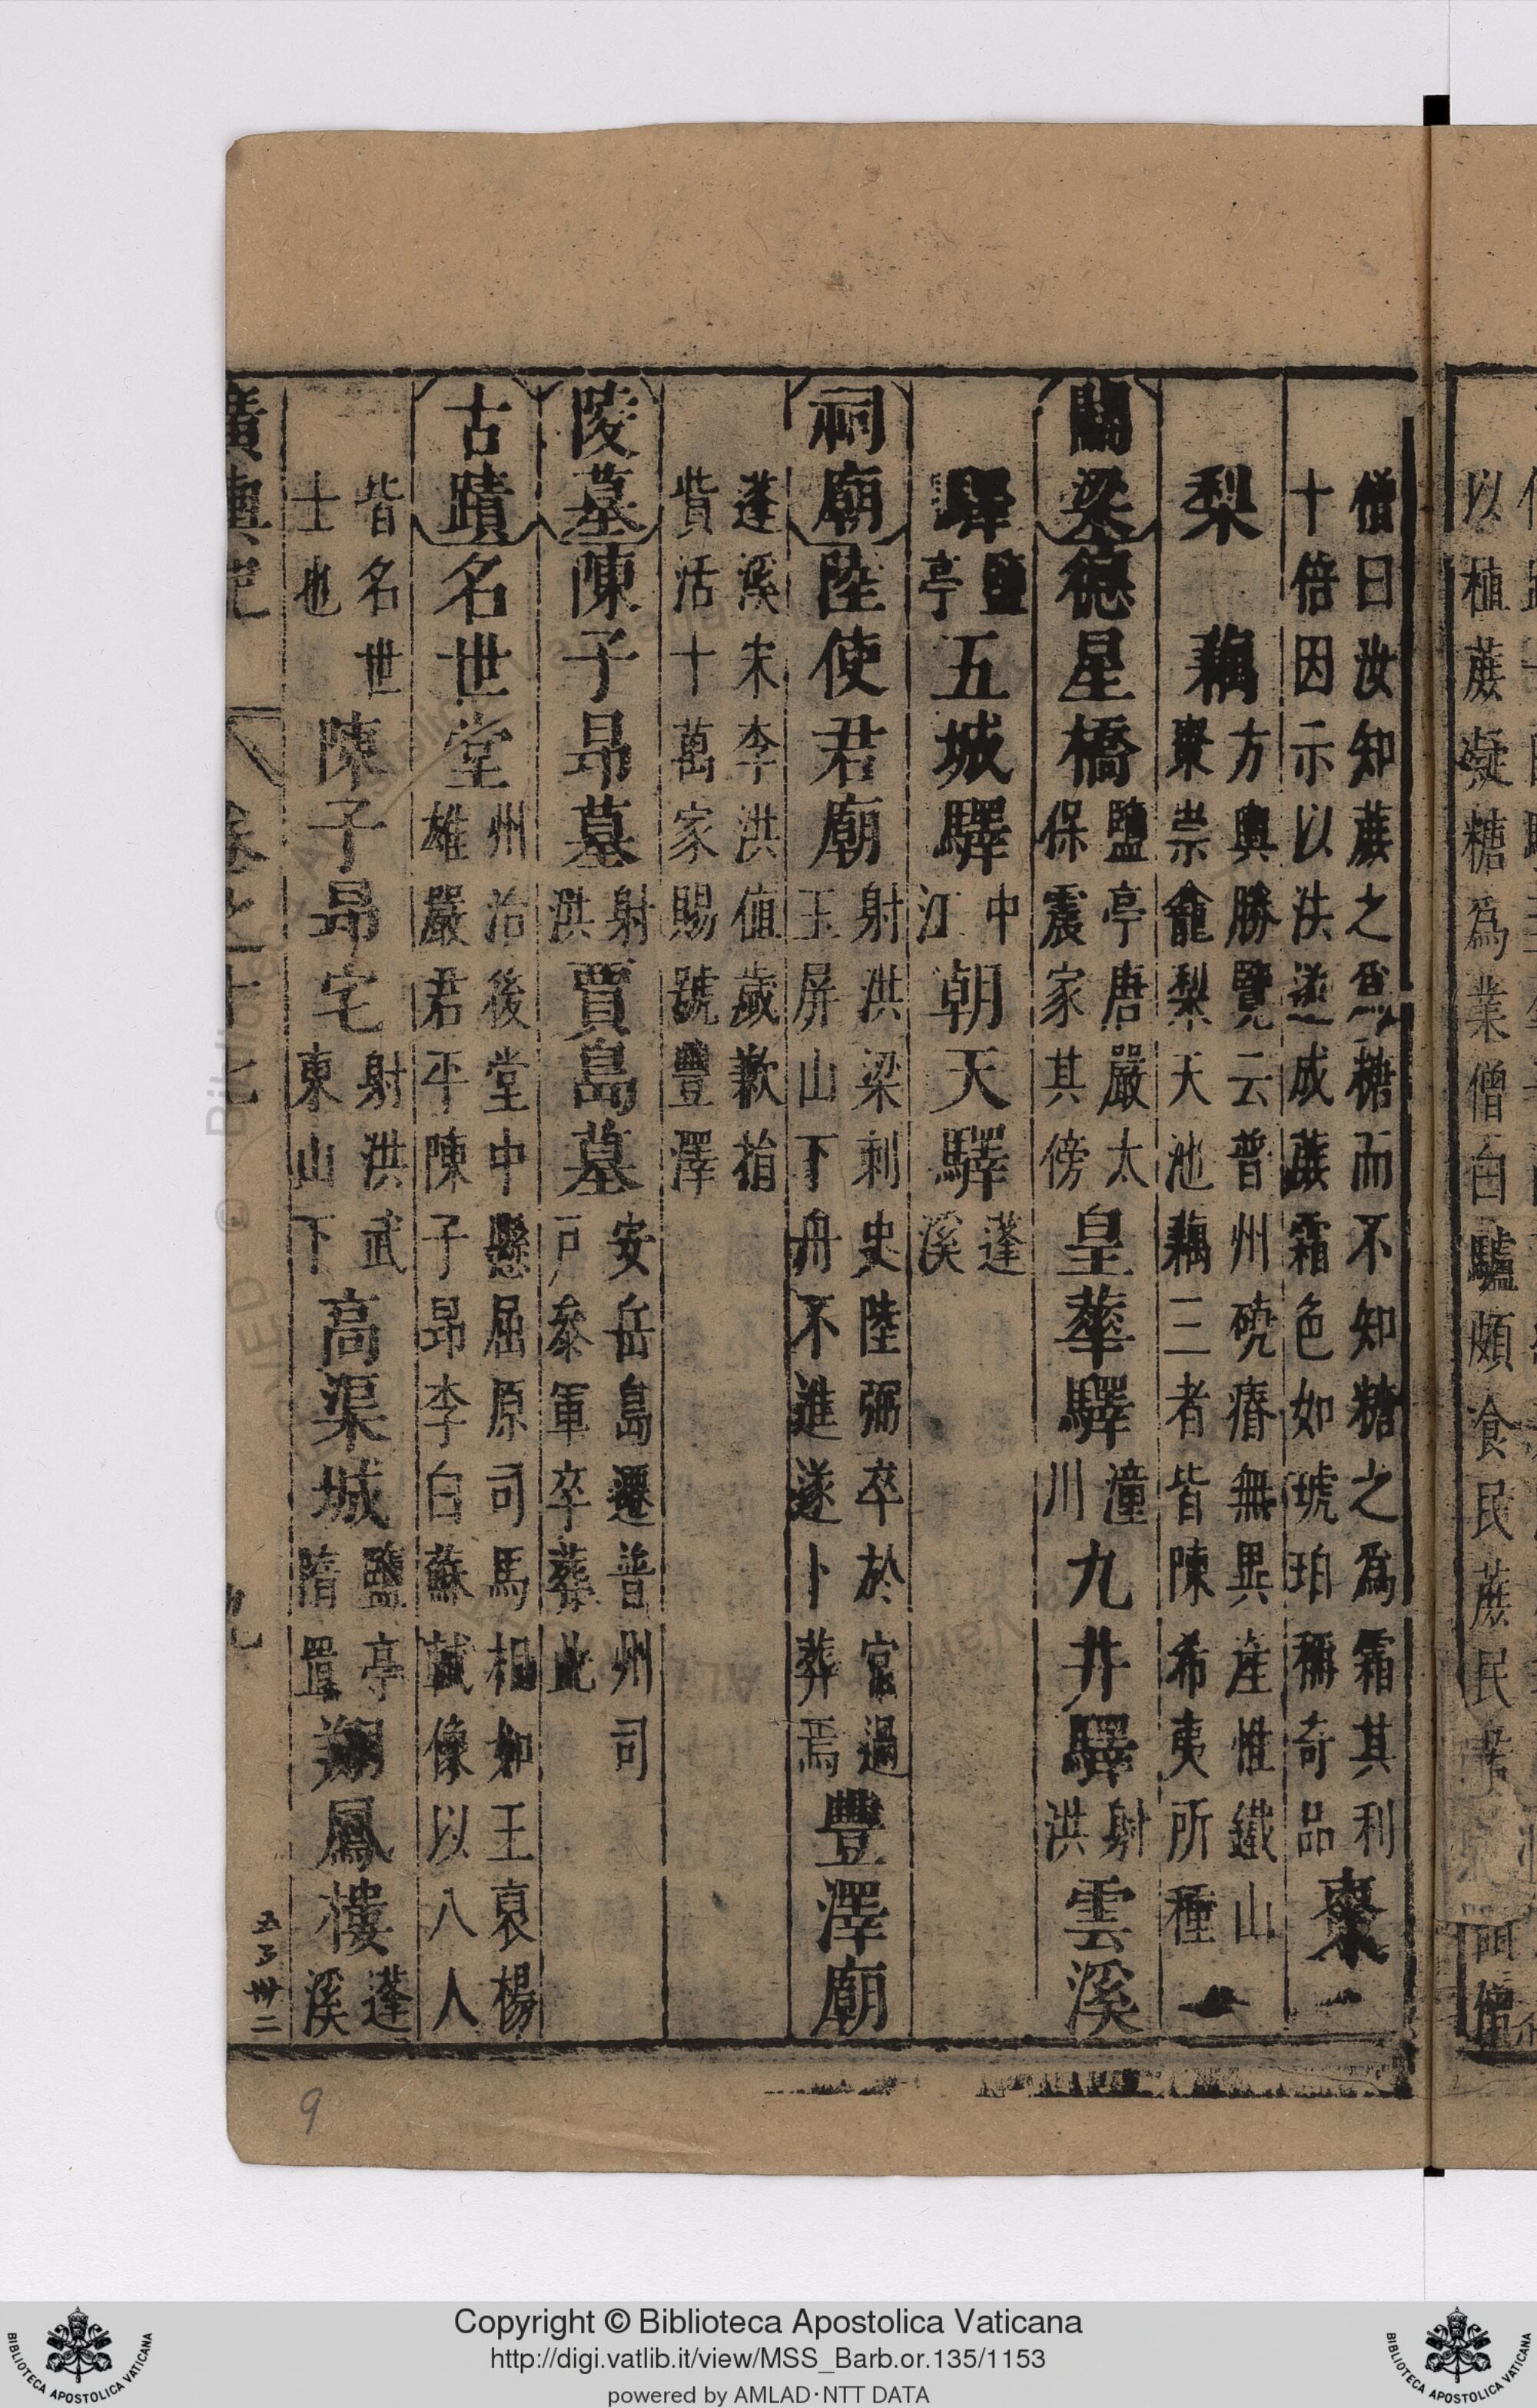 僧曰汝知蔗之為糖而不知糖之為霜其利
十倍因示以法遂成蔗霜色如琥珀稱奇品 棗
梨 藕 方輿勝覽云普州磽瘠無異產惟鐵山
棗崇龕梨天池藕三者皆陳希夷所種
關梁 德星橋 鹽亭唐嚴太
保震家其傍 皇華驛 潼
川 九井驛 射
洪 雲溪
驛 鹽
亭 五城驛 中
江 朝天驛 蓬
溪
祠廟 陸使君廟 射洪梁刺史陸弼卒於官過
玉屏山下舟不進遂卜葬焉 豐澤廟
蓬溪宋李洪値歲歉捐
貲活十萬家賜號豐澤
陵墓 陳子昻墓 射
洪 賈島墓 安岳島遷普州司
戸叅軍卒葬此
古蹟 名世堂 州治後堂中懸屈原司馬相如王裒楊
雄嚴君平陳子昻李白蘇軾像以八人
皆名世
士也 陳子昻宅 射洪武
東山下 高渠城 鹽亭
隋置 翔鳳樓 蓬
溪
廣輿記 卷之十七 九
五了卅二
9
以植蔗凝糖為業僧白驢頗食民蔗民
Copyright © Biblioteca Apostolica Vaticana
http://digi.vatlib.it/view/MSS_Barb.or.135/1153
powered by AMLAD·NTT DATA
BIBLIOTECA APOSTOLICA VATICANA
BIBLIOTECA APOSTOLICA VATICANA